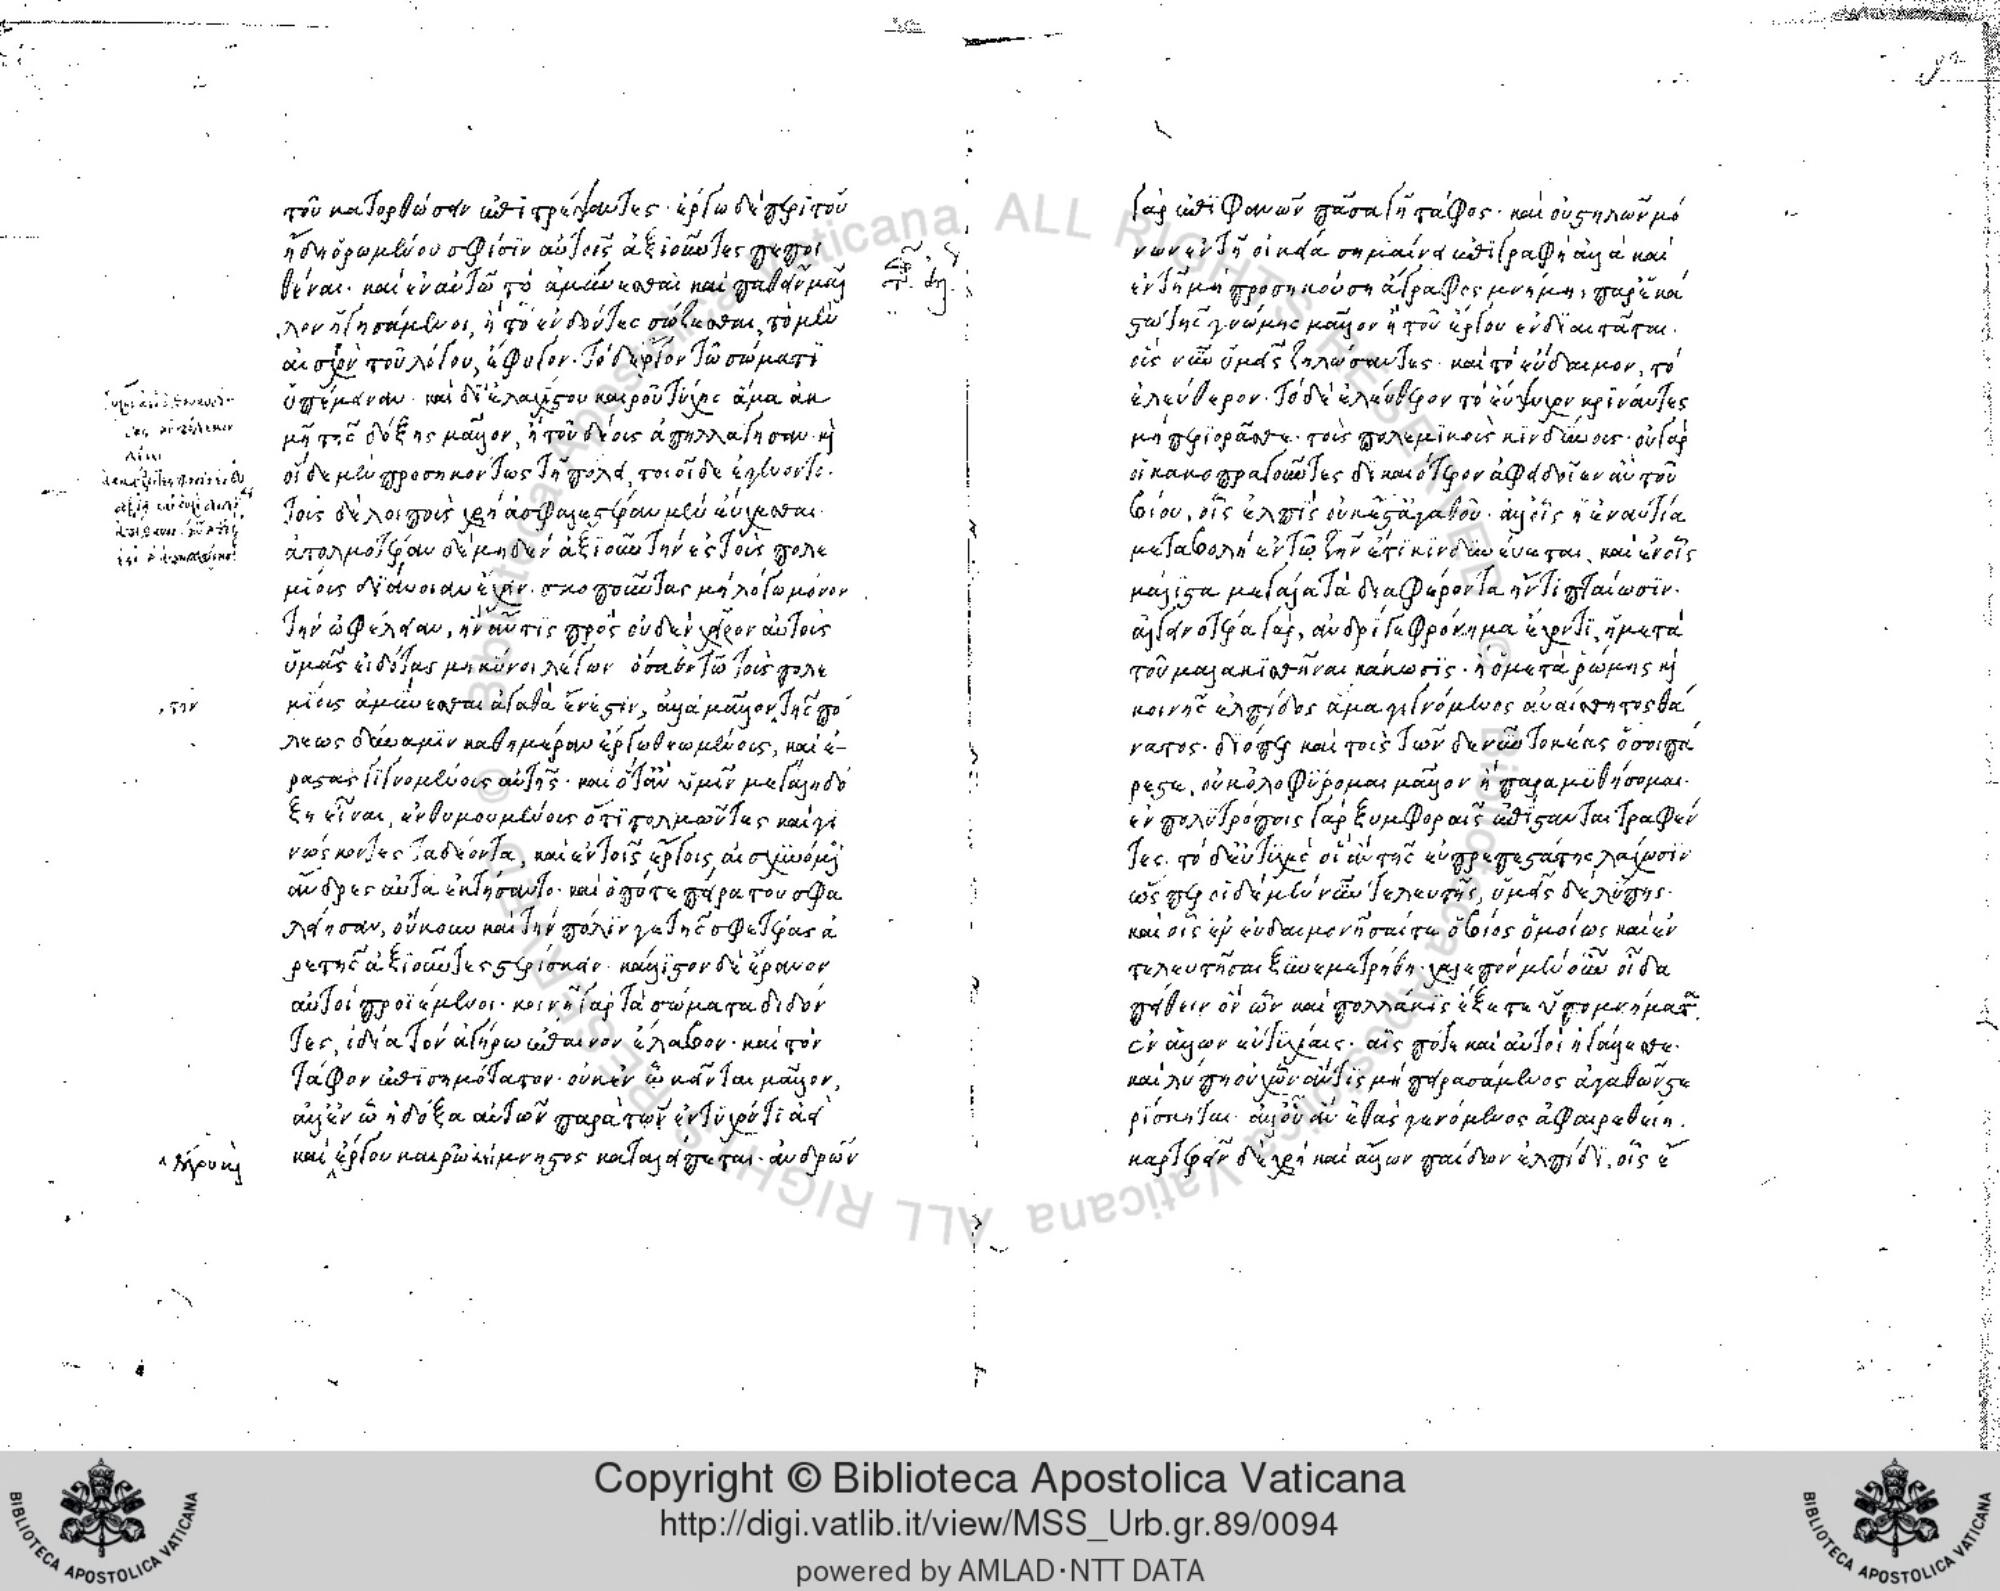 τοῦ κατορθώσειν ἐπιτρέψαντες· ἔργω δὲ περὶ τοῦ
ἤδη ὁρωμένου σφίσιν αὐτοῖς ἀξιοῦντες πεποι
θέναι· καὶ ἐν αὐτῶ τὸ ἀμύνεσθαι καὶ παθεῖν μᾶλ
λον ἡγησάμενοι, ἢ τὸ ἐνδόντες σώζεσθαι, τὸ μὲν
αἰσχρὸν τοῦ λόγου, ἔφυγον· τὸ δ' ἔργον τῶ σώματι
ὑπέμειναν· καὶ δι' ἐλαχίστου καιροῦ τύχης ἅμα ἀκ
μῆ τῆς δόξης μᾶλλον, ἢ τοῦ δέους ἀπηλλάγησαν· καὶ
οἵδε μὲν προσηκόντως τῆ πόλει, τοιοίδε ἐγένοντο·
τοὺς δὲ λοιποὺς χρὴ ἀσφαλεστέραν μὲν εὔχεσθαι·
ἀτολμοτέραν δὲ μηδὲν ἀξιοῦν τὴν ἐς τοὺς πολε
μίους διάνοιαν ἔχειν· σκοποῦντας μὴ λόγω μόνον
τὴν ὠφέλειαν, ἣν ἄν τις πρὸς οὐδὲν χεῖρον αὐτοὺς
ὑμᾶς εἰδότας μηκύνοι λέγων ὅσα ἐν τῶ τοὺς πολε
μίους ἀμύνεσθαι ἀγαθὰ ἔνεστιν, ἀλλὰ μᾶλλον τῆς πό
,την
λεως δύναμιν καθημέραν ἔργω θεωμένους, καὶ ἐ-
ραστὰς γιγνομένους αὐτῆς· καὶ ὅταν ὑμῖν μεγάλη δό
ξη εἶναι, ἐνθυμουμένους ὅτι τολμῶντες καὶ γι
νώσκοντες τὰ δέοντα, καὶ ἐν τοῖς ἔργοις αἰσχυνόμενοι
ἄνδρες αὐτὰ ἐκτήσαντο· καὶ ὁπότε πείρα του σφα
λείησαν, οὔκουν καὶ τὴν πόλιν γε τῆς σφετέρας ἀ
ρετῆς ἀξιοῦντες στερίσκειν· κάλλιστον δὲ ἔρανον
αὐτοὶ προϊέμενοι· κοινῆ γὰρ τὰ σώματα διδόν
τες, ἰδία τὸν ἀγήρω ἔπαινον ἐλάβον· καὶ τὸν
τάφον ἐπισημότατον· οὐκ ἐν ὧ κεῖνται μᾶλλον,
ἀλλ' ἐν ὧ ἡ δόξα αὐτῶν παρὰ τῶ ἐντυχόντι ἀεὶ
καὶ ἔργου καιρῶ ἀείμνηστος καταλείπεται· ἀνδρῶν
γὰρ ἐπιφανῶν πᾶσα γῆ τάφος· καὶ οὐ στηλῶν μό
νων ἐν τῆ οἰκεία σημαίνει ἐπιγραφὴ ἀλλὰ καὶ
ἐν τῆ μὴ προσηκούση ἄγραφος μνήμη, παρ' ἑκά
στω τῆς γνώμης μᾶλλον ἢ τοῦ ἔργου ἐνδιαιτᾶται·
οὓς νῦν ὑμεῖς ζηλώσαντες· καὶ τὸ εὔδαιμον, τὸ
ἐλεύθερον· τὸ δὲ ἐλεύθερον τὸ εὔψυχον κρίναντες
μὴ περιορᾶσθε· τοὺς πολεμικοὺς κινδύνους· οὐ γὰρ
οἱ κακοπραγοῦντες δικαιότερον ἀφειδοῖεν ἂν τοῦ
βίου, οἷς ἐλπὶς οὐκ ἔστ' ἀγαθοῦ· ἀλλ' οἷς ἡ ἐναντία
μεταβολὴ ἐν τῶ ζῆν ἔτι κινδυνεύεται, καὶ ἐν οἷς
μάλιστα μεγάλα τὰ διαφέροντα ἤν τι πταίωσιν·
ἀλγεινοτέρα γὰρ, ἀνδρί γε φρόνημα ἔχοντι, ἡ μετὰ
τοῦ μαλακισθῆναι κάκωσις· ἢ ὁ μετὰ ῥώμης καὶ
κοινῆς ἐλπίδος ἅμα γιγνόμενος ἀναίσθητος θά
νατος· διόπερ καὶ τοὺς τῶν δε νῦν τοκέας ὅσοι πά
ρεστε, οὐκ ὀλοφύρομαι μᾶλλον ἢ παραμυθήσομαι·
ἐν πολυτρόποις γὰρ ξυμφοραῖς ἐπίστανται τραφέν
τες· τὸ δ' εὐτυχὲς οἳ ἂν τῆς εὐπρεπεστάτης λάχωσιν
ὥσπερ οἵδε μὲν νῦν τελευτῆς, ὑμεῖς δὲ λύπης·
καὶ οἷς ἐν εὐδαιμονῆσαί τε ὁ βίος ὁμοίως καὶ ἐν
τελευτῆσαι ξυνεμετρήθη· χαλεπὸν μὲν οὖν οἶδα
πείθειν ὂν ὧν καὶ πολλάκις ἕξετε ὑπομνήματα
ἐν ἄλλων εὐτυχίαις· αἷς ποτὲ καὶ αὐτοὶ ἠγάλεσθε·
καὶ λύπη οὐχ ὧν ἄν τις μὴ πειρασάμενος ἀγαθῶν στε
ρίσκηται· ἀλλ' οὗ ἂν ἐθὰς γενόμενος ἀφαιρεθείη·
καρτερεῖν δὲ χρὴ καὶ ἄλλων παίδων ἐλπίδι, οἷς ἔ
Copyright © Biblioteca Apostolica Vaticana
http://digi.vatlib.it/view/MSS_Urb.gr.89/0094
powered by AMLAD·NTT DATA